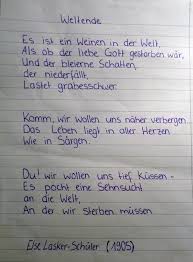 Weltende
Es ist ein Weinen in der Welt,
Als ob der liebe Gott gestorben wär,
Und der bleierne Schatten,
der niederfällt,
Lastet grabesschwer.
Komm, wir wollen uns näher verbergen.
Das Leben liegt in aller Herzen
Wie in Särgen.
Du! wir wollen uns tief küssen -
Es pocht eine Sehnsucht
an die Welt,
An der wir sterben müssen
Else Lasker-Schüler (1905)